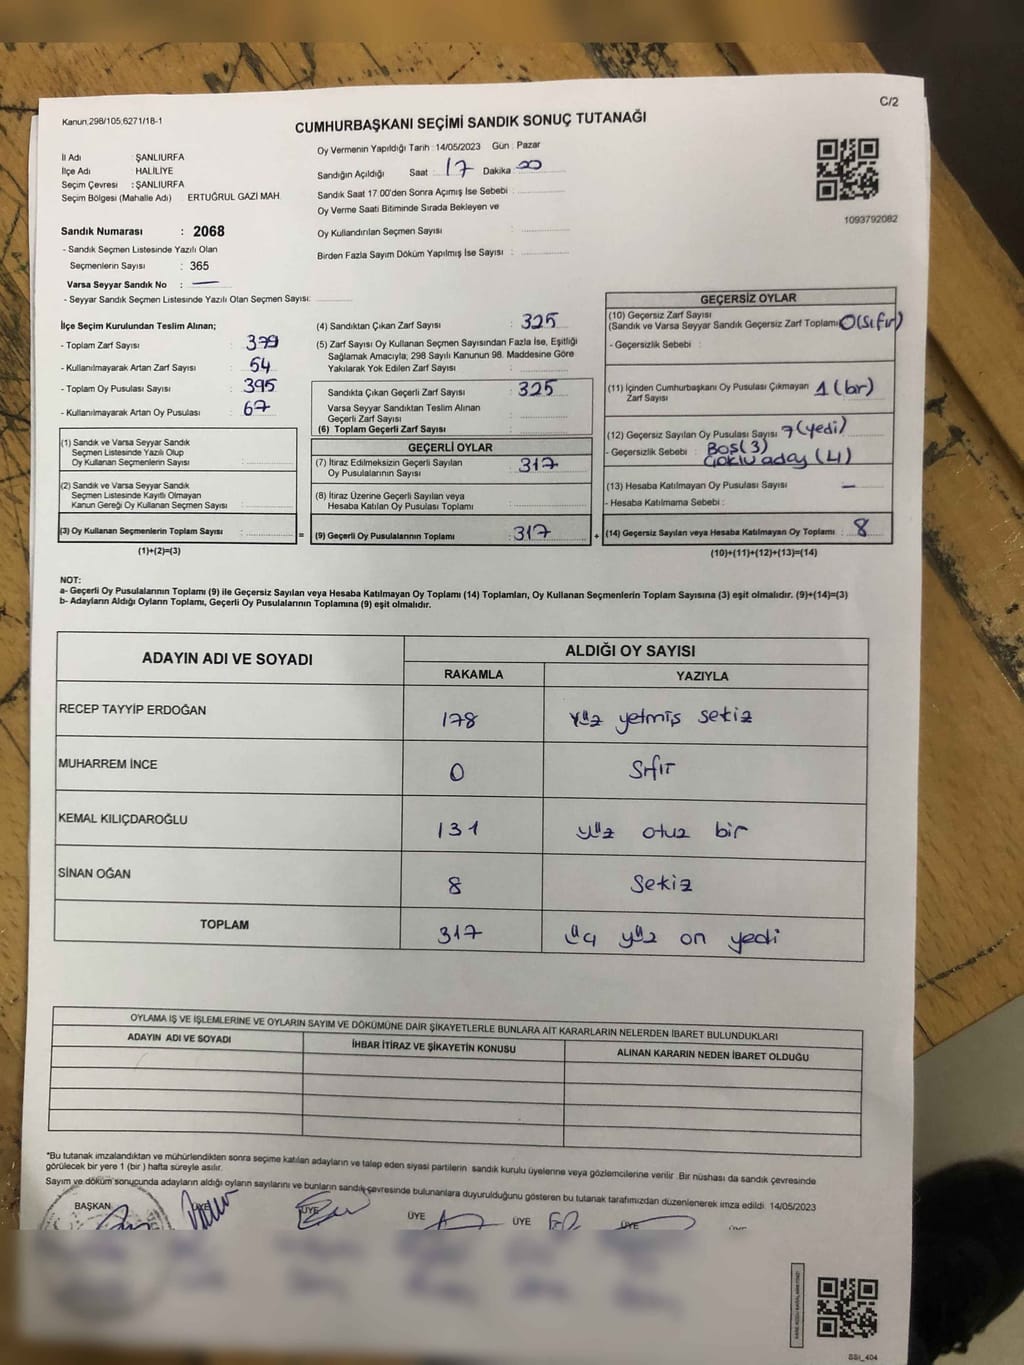 C/2
Kanun,298/105,6271/18-1
CUMHURBAŞKANI SEÇİMİ SANDIK SONUÇ TUTANAĞI
İl Adı : ŞANLIURFA
İlçe Adı : HALİLİYE
Seçim Çevresi : ŞANLIURFA
Seçim Bölgesi (Mahalle Adı) ERTUĞRUL GAZİ MAH.
Oy Vermenin Yapıldığı Tarih : 14/05/2023 Gün : Pazar
Sandığın Açıldığı Saat : 17 Dakika : 00
Sandık Saat 17.00'den Sonra Açımış İse Sebebi :
Oy Verme Saati Bitiminde Sırada Bekleyen ve
Oy Kullandırılan Seçmen Sayısı :
Birden Fazla Sayım Döküm Yapılmış İse Sayısı :
1093792082
Sandık Numarası : 2068
- Sandık Seçmen Listesinde Yazılı Olan
Seçmenlerin Sayısı : 365
Varsa Seyyar Sandık No : —
- Seyyar Sandık Seçmen Listesinde Yazılı Olan Seçmen Sayısı:
İlçe Seçim Kurulundan Teslim Alınan;
- Toplam Zarf Sayısı : 379
- Kullanılmayarak Artan Zarf Sayısı : 54
- Toplam Oy Pusulası Sayısı : 395
- Kullanılmayarak Artan Oy Pusulası : 67
(1) Sandık ve Varsa Seyyar Sandık
Seçmen Listesinde Yazılı Olup
Oy Kullanan Seçmenlerin Sayısı :
(2) Sandık ve Varsa Seyyar Sandık
Seçmen Listesinde Kayıtlı Olmayan
Kanun Gereği Oy Kullanan Seçmen Sayısı :
(3) Oy Kullanan Seçmenlerin Toplam Sayısı : =
(1)+(2)=(3)
(4) Sandıktan Çıkan Zarf Sayısı : 325
(5) Zarf Sayısı Oy Kullanan Seçmen Sayısından Fazla İse, Eşitliği
Sağlamak Amacıyla; 298 Sayılı Kanunun 98. Maddesine Göre
Yakılarak Yok Edilen Zarf Sayısı :
Sandıkta Çıkan Geçerli Zarf Sayısı : 325
Varsa Seyyar Sandıktan Teslim Alınan
Geçerli Zarf Sayısı :
(6) Toplam Geçerli Zarf Sayısı :
GEÇERLİ OYLAR
(7) İtiraz Edilmeksizin Geçerli Sayılan
Oy Pusulalarının Sayısı : 317
(8) İtiraz Üzerine Geçerli Sayılan veya
Hesaba Katılan Oy Pusulası Toplamı :
(9) Geçerli Oy Pusulalarının Toplamı : 317 +
GEÇERSİZ OYLAR
(10) Geçersiz Zarf Sayısı
(Sandık ve Varsa Seyyar Sandık Geçersiz Zarf Toplamı) 0 (Sıfır)
- Geçersizlik Sebebi :
(11) İçinden Cumhurbaşkanı Oy Pusulası Çıkmayan
Zarf Sayısı 1 (bir)
(12) Geçersiz Sayılan Oy Pusulası Sayısı 7 (yedi)
- Geçersizlik Sebebi : Boş (3)
Çoklu aday (4)
(13) Hesaba Katılmayan Oy Pusulası Sayısı —
- Hesaba Katılmama Sebebi :
(14) Geçersiz Sayılan veya Hesaba Katılmayan Oy Toplamı : 8
(10)+(11)+(12)+(13)=(14)
NOT:
a- Geçerli Oy Pusulalarının Toplamı (9) ile Geçersiz Sayılan veya Hesaba Katılmayan Oy Toplamı (14) Toplamları, Oy Kullanan Seçmenlerin Toplam Sayısına (3) eşit olmalıdır. (9)+(14)=(3)
b- Adayların Aldığı Oyların Toplamı, Geçerli Oy Pusulalarının Toplamına (9) eşit olmalıdır.
ADAYIN ADI VE SOYADI
ALDIĞI OY SAYISI
RAKAMLA YAZIYLA
RECEP TAYYİP ERDOĞAN 178 Yüz yetmiş sekiz
MUHARREM İNCE 0 Sıfır
KEMAL KILIÇDAROĞLU 131 yüz otuz bir
SİNAN OĞAN 8 Sekiz
TOPLAM 317 üç yüz on yedi
OYLAMA İŞ VE İŞLEMLERİNE VE OYLARIN SAYIM VE DÖKÜMÜNE DAİR ŞİKAYETLERLE BUNLARA AİT KARARLARIN NELERDEN İBARET BULUNDUKLARI
ADAYIN ADI VE SOYADI İHBAR İTİRAZ VE ŞİKAYETİN KONUSU ALINAN KARARIN NEDEN İBARET OLDUĞU
*Bu tutanak imzalandıktan ve mühürlendikten sonra seçime katılan adayların ve talep eden siyasi partilerin sandık kurulu üyelerine veya gözlemcilerine verilir. Bir nüshası da sandık çevresinde
görülecek bir yere 1 (bir) hafta süreyle asılır.
Sayım ve döküm sonucunda adayların aldığı oyların sayılarını ve bunların sandık çevresinde bulunanlara duyurulduğunu gösteren bu tutanak tarafımızdan düzenlenerek imza edildi. 14/05/2023
BAŞKAN ÜYE ÜYE ÜYE ÜYE ÜYE
SSI_404